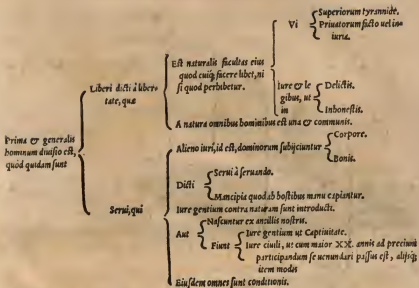 Prima & generalis
hominum diuisio est,
quòd quidam sunt
Liberi dicti à liber
tate, quæ
Est naturalis facultas eius
quod cuiq; facere libet, ni
si quod perhibetur.
Vi
Superiorum tyrannide,
Priuatorum facto uel in
iuria.
Iure & le
gibus, ut
in
Delictis.
Inhonestis.
A natura omnibus hominibus est una & communis.
Serui, qui
Alieno iuri, id est, dominorum subijciuntur
Corpore.
Bonis.
Dicti
Serui à seruando.
Mancipia quod ab hostibus manu capiantur.
Iure gentium contra naturam sunt introducti.
Aut
Nascuntur ex ancillis nostris.
Fiunt
Iure gentium ut Captiuitate.
Iure ciuili, ut cum maior XX. annis ad precium
participandum se uenundari passus est, alijsq;
item modis
Eiusdem omnes sunt conditionis.